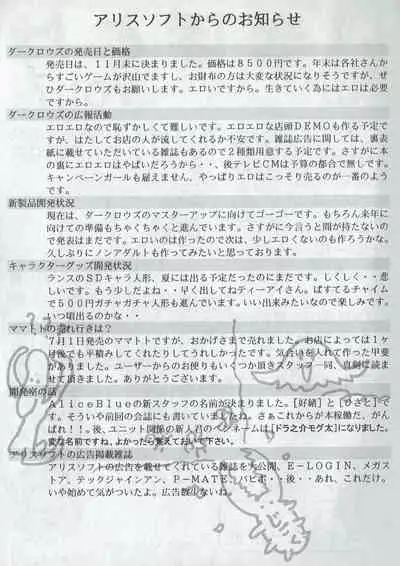 アリスソフトからのお知らせ
ダークロウズの発売日と価格
発売日は、11月末に決まりました。価格は8500円です。年末は各社さん
からすごいゲームが沢山でますし、お財布の方は大変な状況になりそうですが、ぜ
ひダークロウズもお願いします。エロいですから。生きていく為にはエロは必要
ですから。
ダークロウズの広報活動
エロエロなので恥ずかしくて難しいです。エロエロな店頭DEMOも作る予定で
すが、はたしてお店の人が流してくれるか不安です。雑誌広告に関しては、裏表
紙に載せていただいている雑誌もあるので2種類用意する予定です。さすがに本
の裏にエロエロはやばいだろうから・・、後テレビCMは予算の都合で無しです。
キャンペーンガールも雇えません、やっぱりエロはこっそり売るのが一番のよう
です。
新製品開発状況
現在は、ダークロウズのマスターアップに向けてゴーゴーです。もちろん来年に
向けての準備もちゃくちゃくと進んでいます。さすがに今言うと間が持たないの
で発表はまだです。エロいのは作ったので次は、少しエロくないのも作ろうかな。
久しぶりにノンアダルトも作ってみたいと思っております。
キャラクターグッズ開発状況
ランスのSDキャラ人形、夏には出る予定だったのにまだです。しくしく・・悲
しいです。もう少しだよね・・早く出してねティーアイさん。ぱすてるチャイム
で500円ガチャガチャ人形も進んでいます。いい出来みたいなので楽しみです。
いつ頃出るのかな・・
ママトトの売れ行きは?
7月1日発売のママトトですが、おかげさまで売れました。お店によっては1ヶ
月後でも平積みしてくれたりしてうれしかったです。気合いを入れて作った甲斐
がありました。ユーザーからのお便りもいくつか頂きスタッフ一同、真剣に読ま
せて頂きました。ありがとうございます。
開発室の話
AliceBlueの新スタッフの名前が決まりました。[好緒]と[ひさと]で
す。そういや前回の会誌にも書いていましたね。さぁこれからが本稼働だ、がん
ばれ!!。後、ユニット関係の新人君のペンネームは[ドラ之介モグ太]になりました。
変な名前ですね、よかったら覚えておいて下さい。
アリスソフトの広告掲載雑誌
アリスソフトの広告を載せてくれている雑誌を大公開、E-LOGIN、メガス
トア、テックジャインアン、P-MATE、パピポ・・後・・あれ、これだけ。
いや始めて気がついたよ。広告数少ないね。